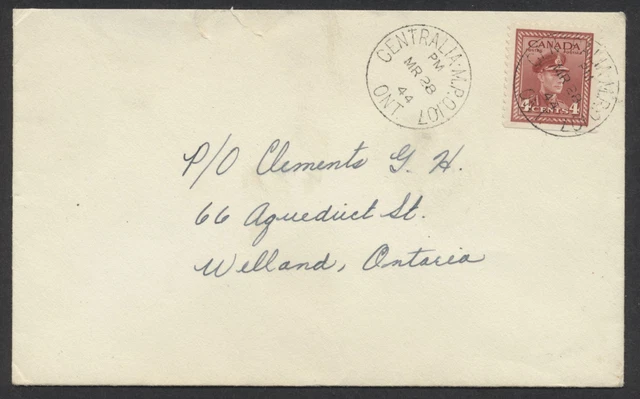 CENTRALIA·M.P.O.107
PM
MR 28
44
ONT.
CANADA
4 CENTS 4
MR 28
44
P/O Clements G. H.
66 Aqueduct St.
Welland, Ontario